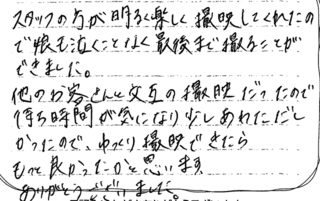 スタッフの方が明るく楽しく撮映してくれたの
で娘も泣くことなく最後まで撮ることが
できました。
他のお客さんと交互の撮映だったので
待ち時間が気になり少しあわただし
かったので、ゆっくり撮映できたら
もっと良かったかと思います
ありがとうございました